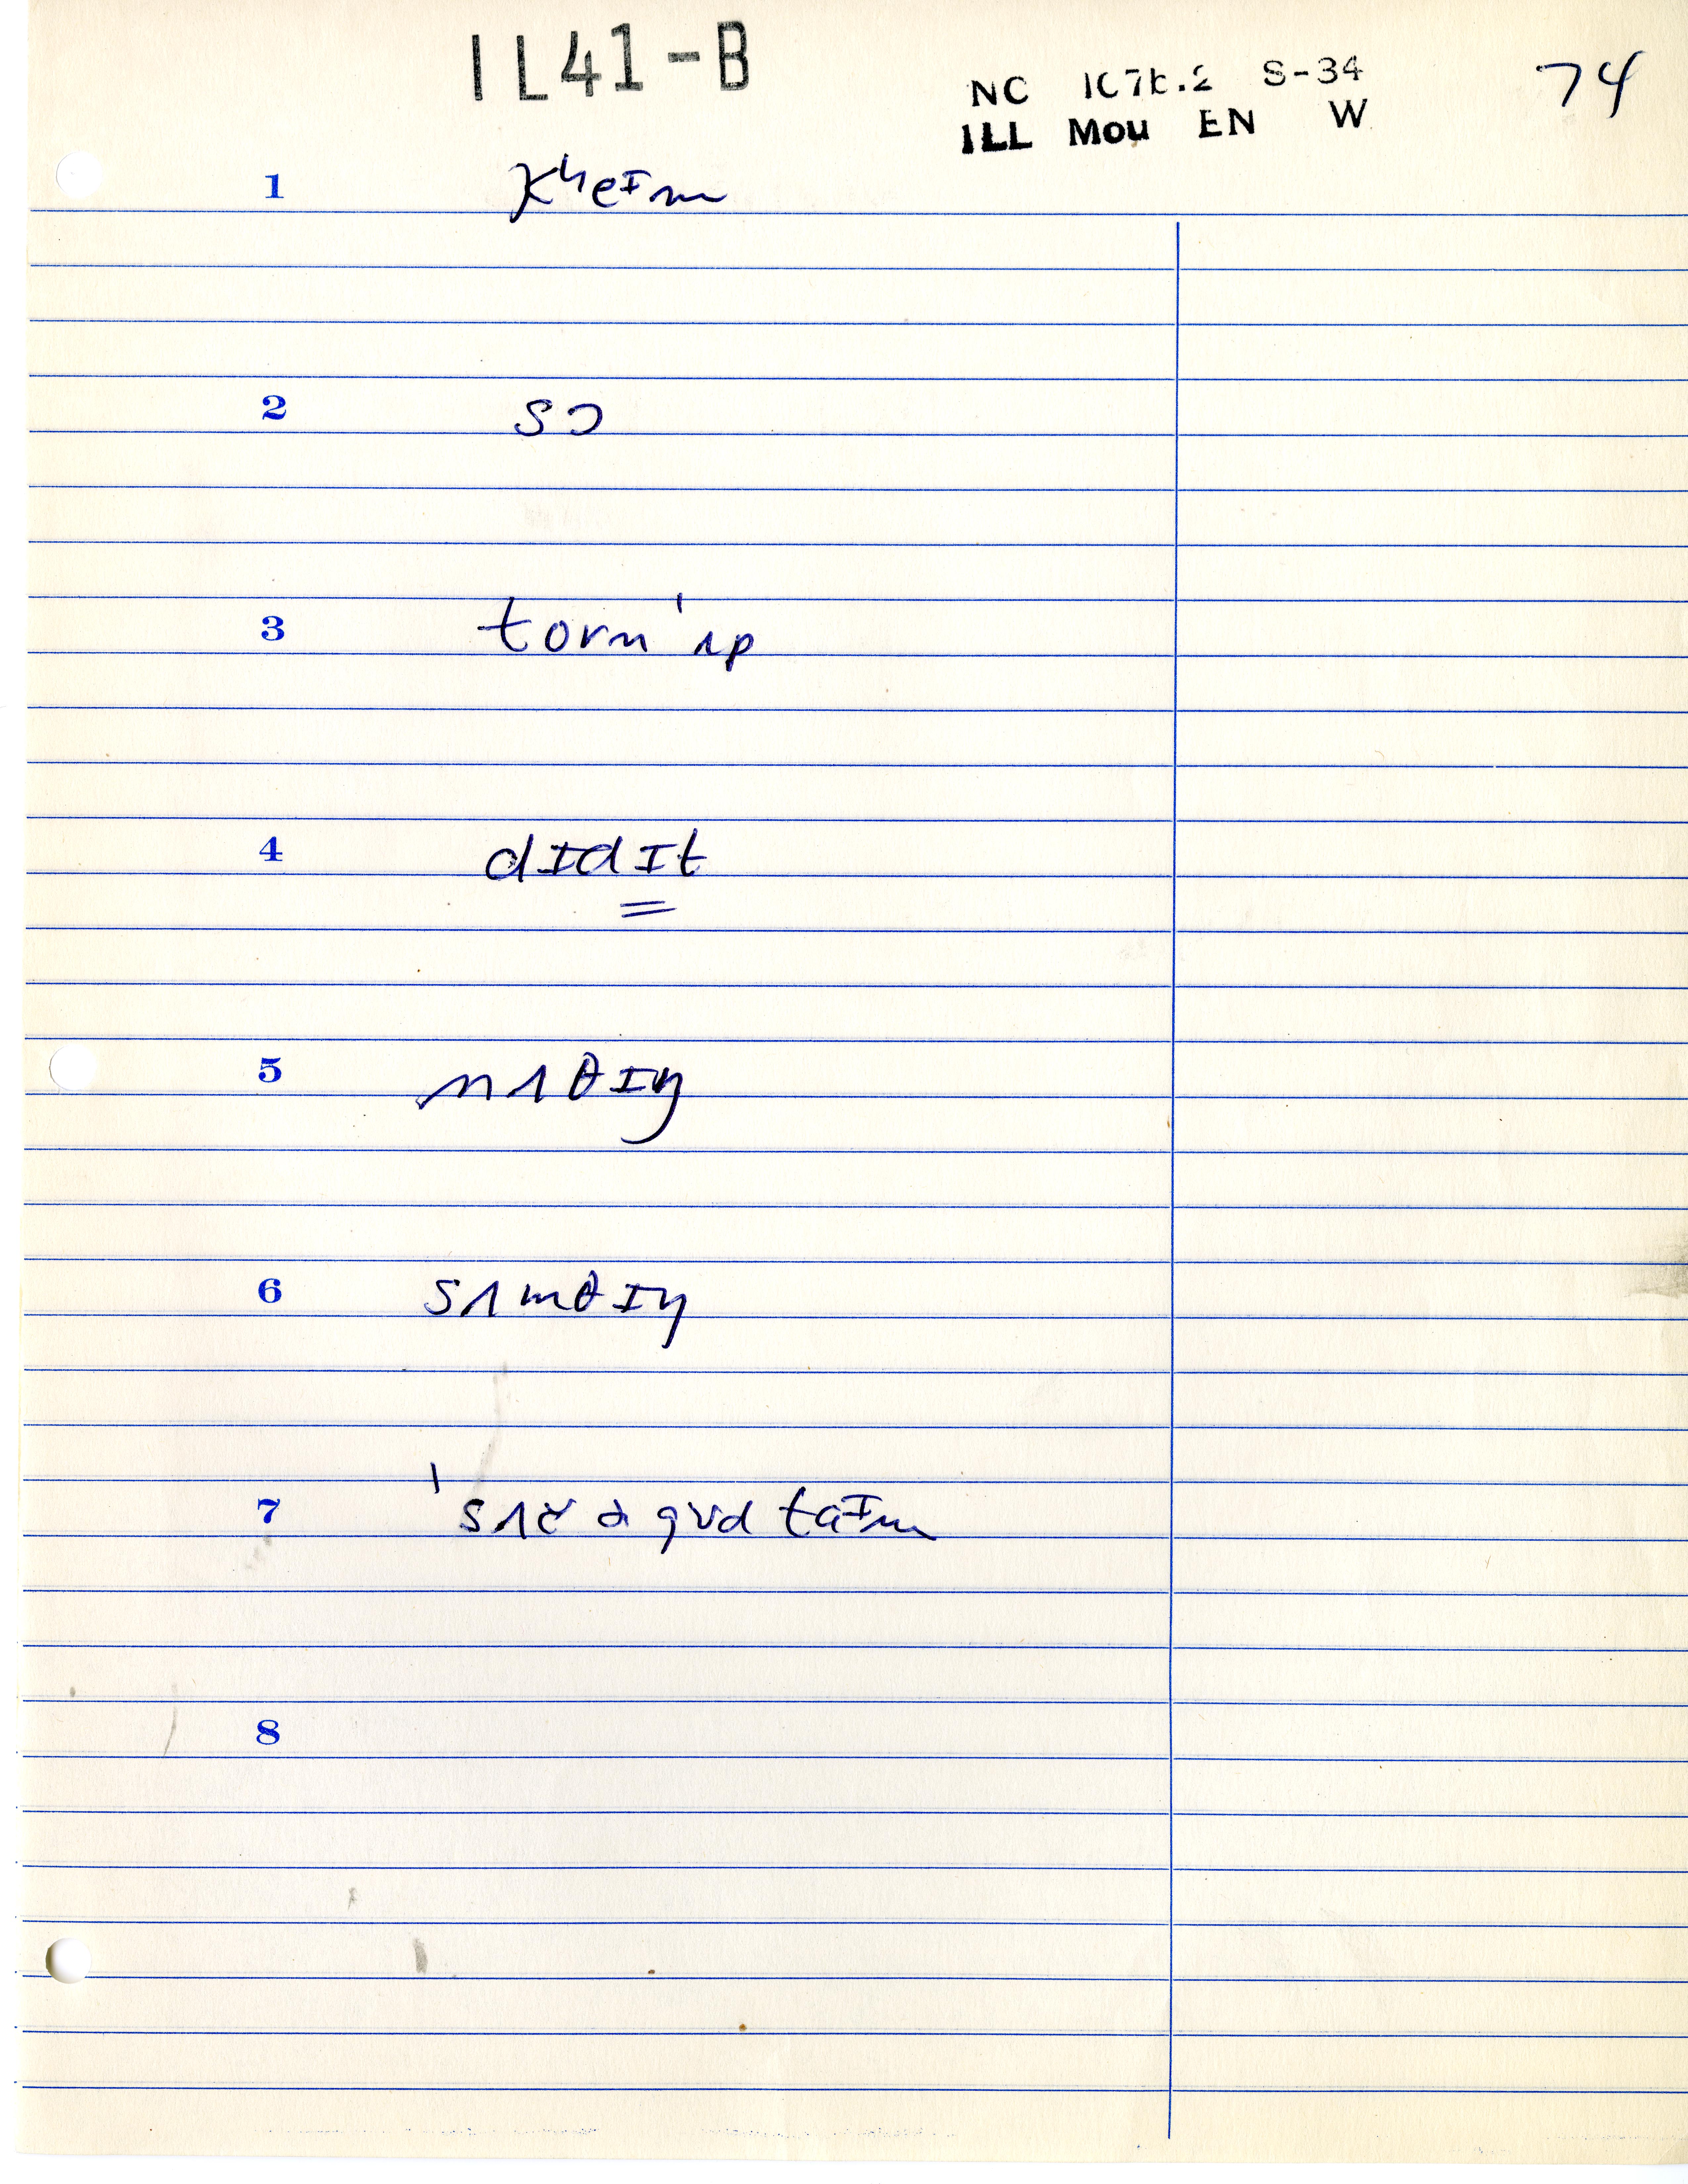 IL41-B
NC 107b.2 S-34
74
ILL Mou EN W
1 kʰeɪm
2 sɔ
3 torn ˈʌp
4 dɪdɪt
5 nʌθɪŋ
6 sʌmθɪŋ
7 ˈsʌč ə gʊd taɪm
8